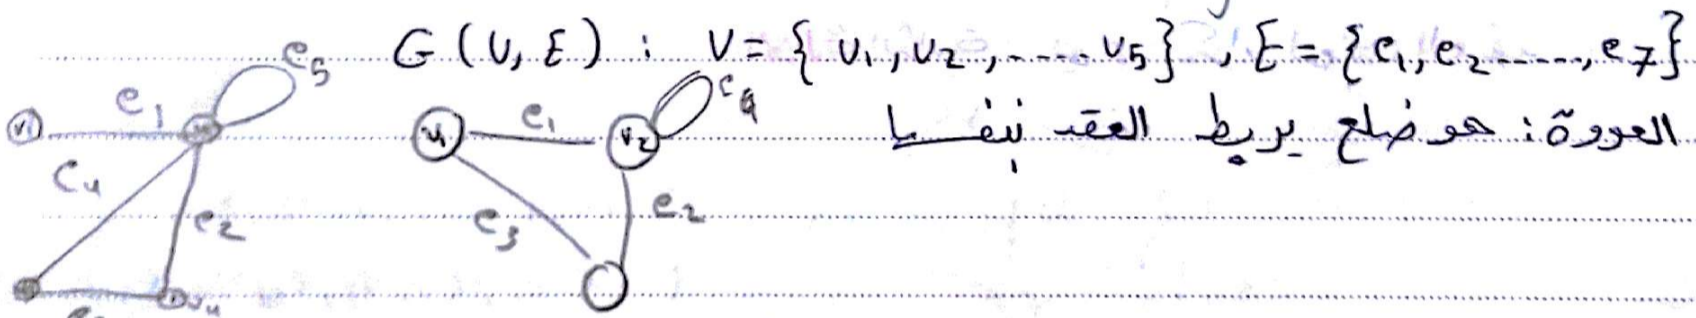 G (V, E) : V = { v₁, v₂, .... v₅ } , E = { e₁, e₂ ....., e₇ }
العروة : هو ضلع يربط العقد بنفسها
e₅
e₁
v₁
e₄
e₂
v₄
e₄
v₁
e₁
v₂
e₃
e₂